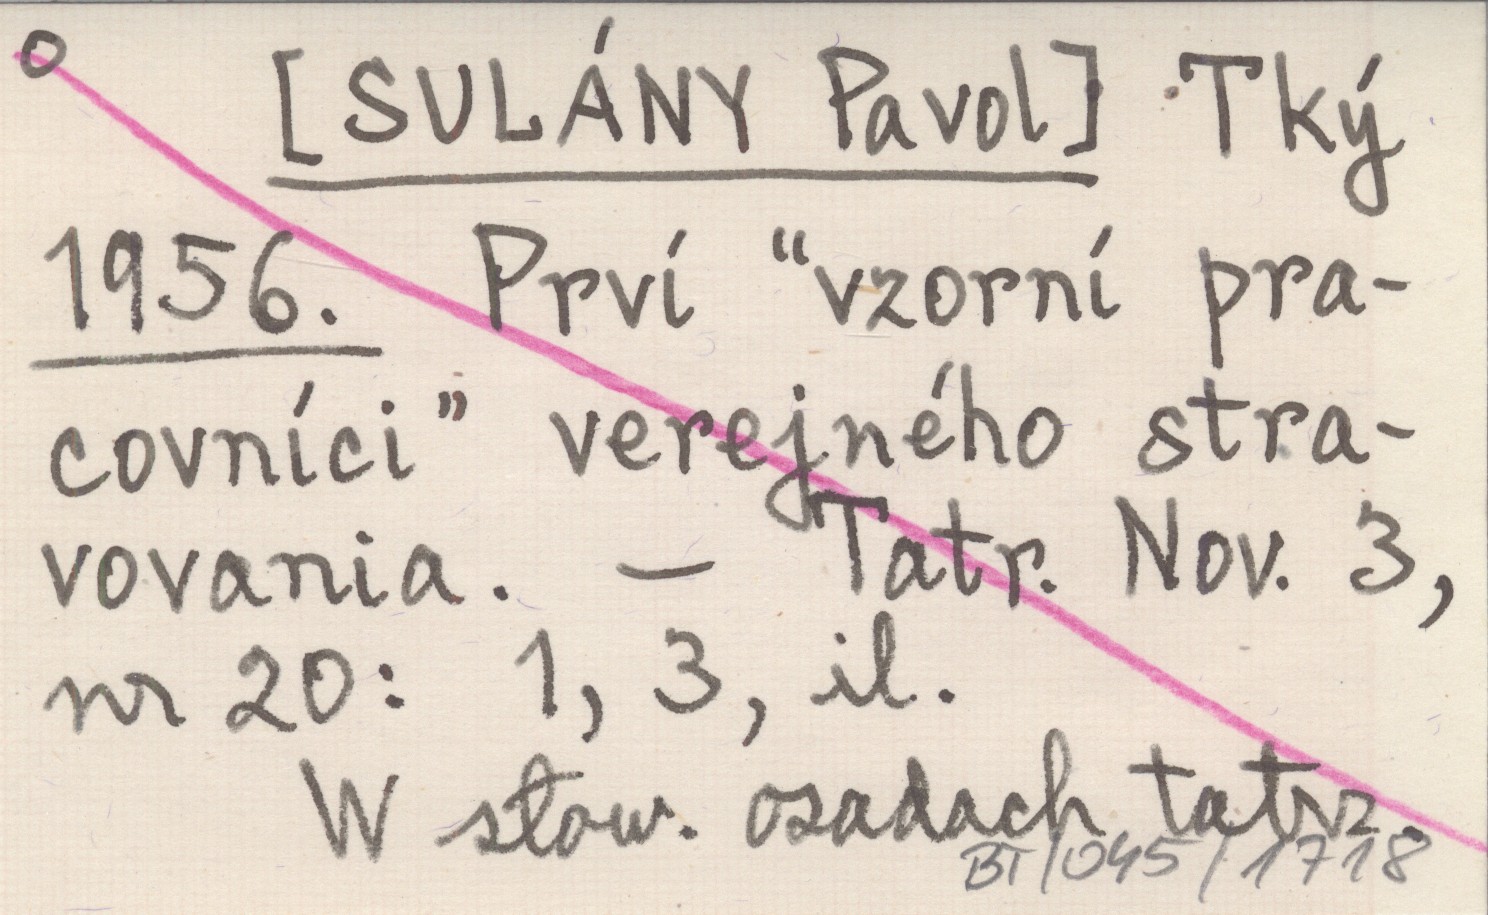 [SULÁNY Pavol] Tký
1956. Prví “vzorní pra-
covníci” verejného stra-
vovania. — Tatr. Nov. 3,
nr 20: 1, 3, il.
W słow. osadach tatrz.
BT/045/1718